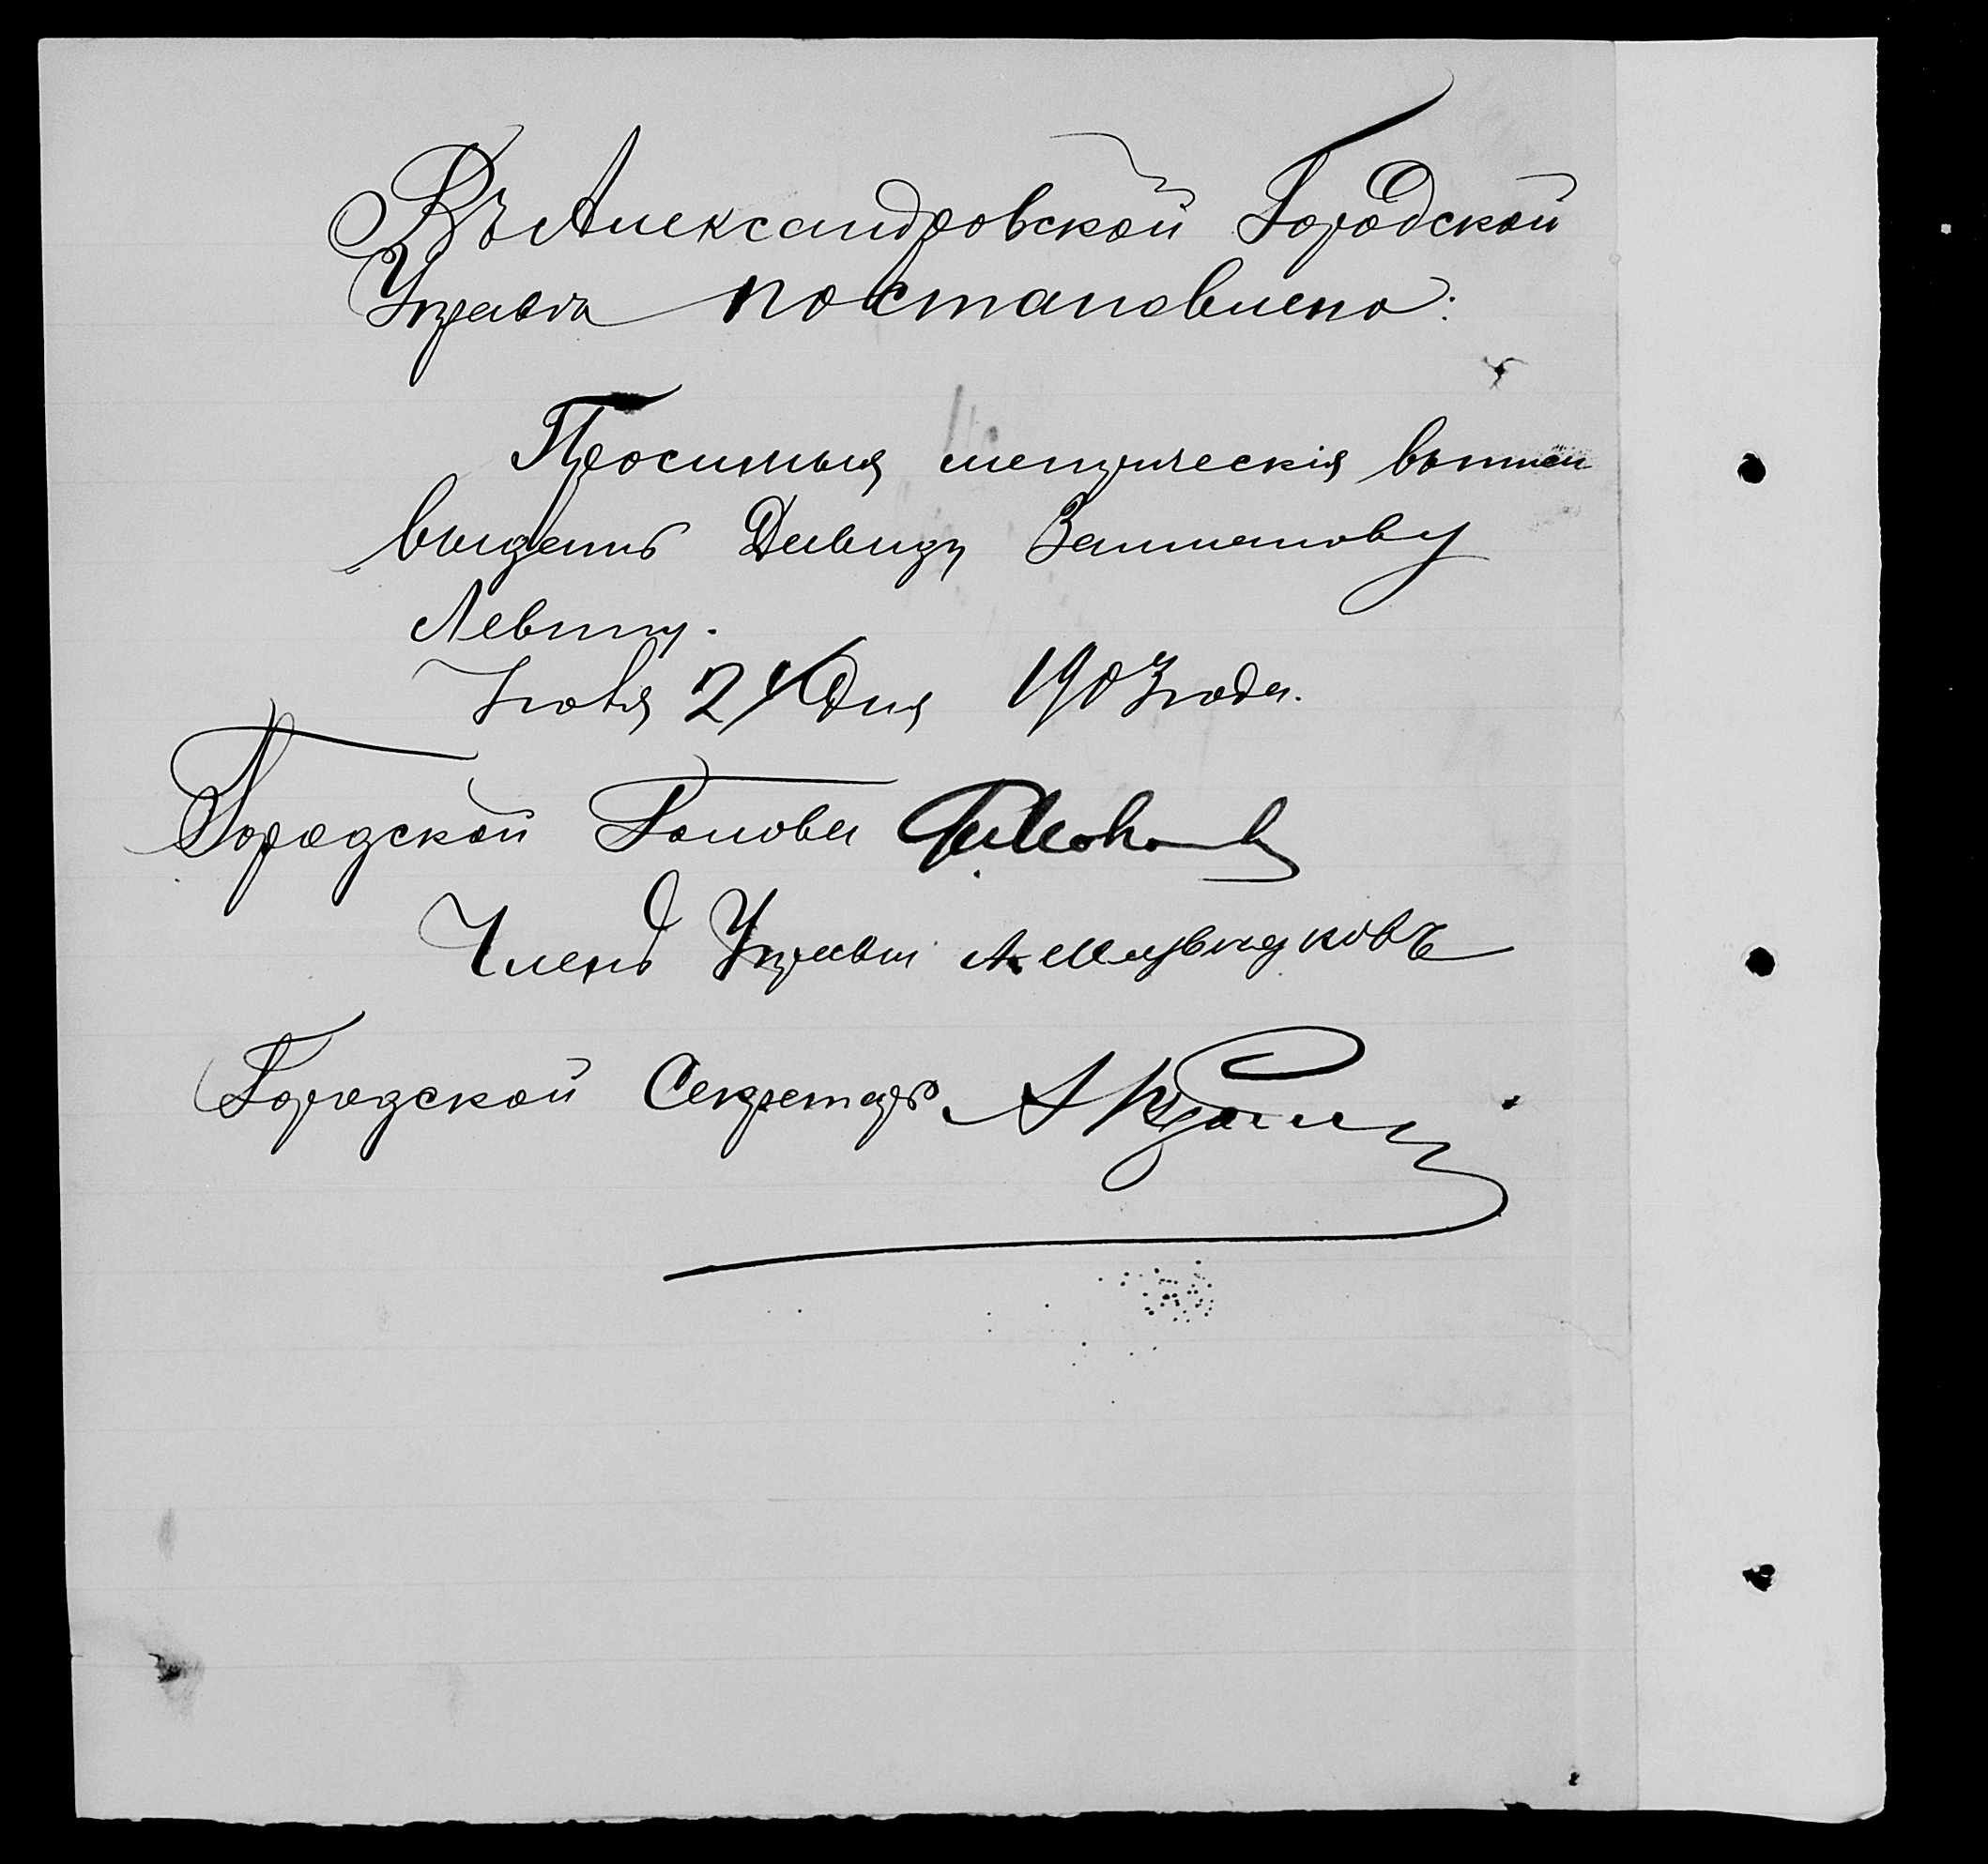 Въ Александровской Городской
Управѣ постановлено:
Просимыя метрическія выписи
выдать Давиду Залманову
Левину.
Іюня 24 дня 1903 года.
Городской Голова
Членъ Управы
Городской Секретарь